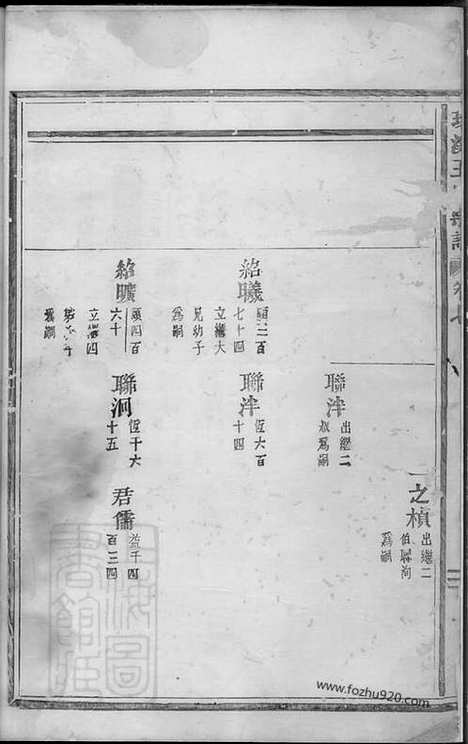 之楨
出繼二
伯聯泂
爲嗣
聯泮
出繼二
叔爲嗣
紹曦
願三百
七十四
立繼大
兄幼子
爲嗣
聯泮
恆六百
十四
紹曠
願四百
六十
立繼四
爲嗣
聯泂
恆千六
十五
君儒
益千四
百三四
www.fozhu920.com